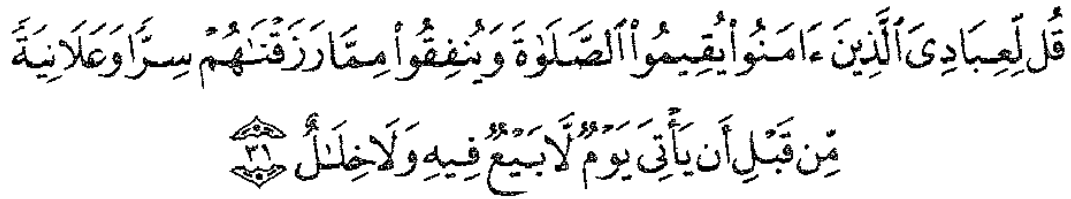 قُل لِّعِبَادِىَ ٱلَّذِينَ ءَامَنُوا۟ يُقِيمُوا۟ ٱلصَّلَوٰةَ وَيُنفِقُوا۟ مِمَّا رَزَقْنَـٰهُمْ سِرًّا وَعَلَانِيَةً
مِّن قَبْلِ أَن يَأْتِىَ يَوْمٌ لَّا بَيْعٌ فِيهِ وَلَا خِلَـٰلٌ ٣١